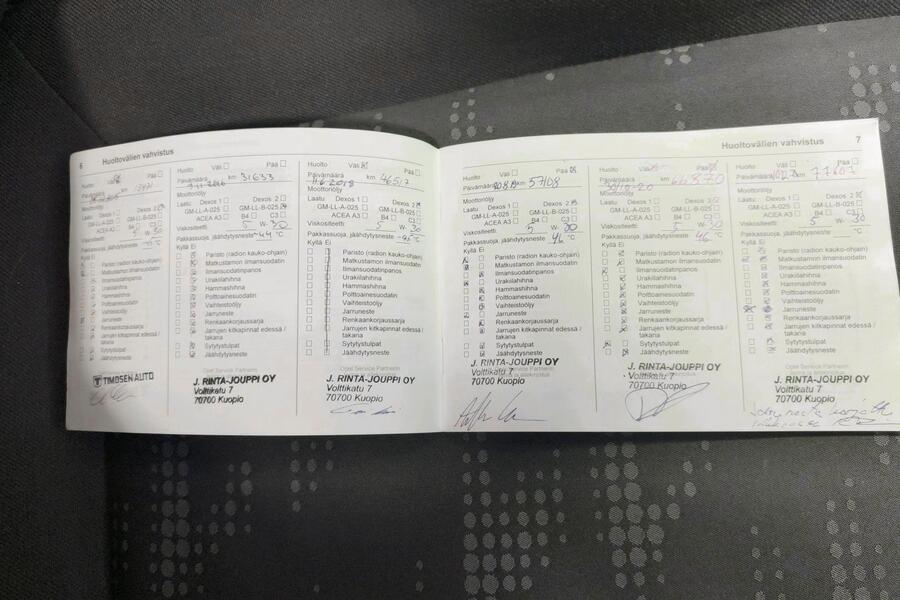 6 Huoltovälien vahvistus
Huolto Väli Pää
Päivämäärä km
Moottoriöljy
Laatu: Dexos 1 Dexos 2
GM-LL-A-025 GM-LL-B-025
ACEA A3 B4 C3
Viskositeetti 5 W- 30
Pakkassuoja, jäähdytysneste °C
Kyllä Ei
Paristo (radion kauko-ohjain)
Matkustamon ilmansuodatin
Ilmansuodatinpanos
Urakiilahihna
Hammashihna
Polttoainesuodatin
Vaihteistoöljy
Jarruneste
Renkaankorjaussarja
Jarrujen kitkapinnat edessä /
takana
Sytytystulpat
Jäähdytysneste
TIMOSEN AUTO
Huolto Väli Pää
Päivämäärä km 31633
Moottoriöljy
Laatu: Dexos 1 Dexos 2
GM-LL-A-025 GM-LL-B-025
ACEA A3 B4 C3
Viskositeetti 5 W- 30
Pakkassuoja, jäähdytysneste -44 °C
Kyllä Ei
Paristo (radion kauko-ohjain)
Matkustamon ilmansuodatin
Ilmansuodatinpanos
Urakiilahihna
Hammashihna
Polttoainesuodatin
Vaihteistoöljy
Jarruneste
Renkaankorjaussarja
Jarrujen kitkapinnat edessä /
takana
Sytytystulpat
Jäähdytysneste
Opel Service Partnerin
J. RINTA-JOUPPI OY
Volttikatu 7
70700 Kuopio
Huolto Väli Pää
Päivämäärä 11.6.2018 km 46517
Moottoriöljy
Laatu: Dexos 1 Dexos 2
GM-LL-A-025 GM-LL-B-025
ACEA A3 B4 C3
Viskositeetti 5 W- 30
Pakkassuoja, jäähdytysneste °C
Kyllä Ei
Paristo (radion kauko-ohjain)
Matkustamon ilmansuodatin
Ilmansuodatinpanos
Urakiilahihna
Hammashihna
Polttoainesuodatin
Vaihteistoöljy
Jarruneste
Renkaankorjaussarja
Jarrujen kitkapinnat edessä /
takana
Sytytystulpat
Jäähdytysneste
J. RINTA-JOUPPI OY
Volttikatu 7
70700 Kuopio
Huoltovälien vahvistus 7
Huolto Väli Pää
Päivämäärä km 57108
Moottoriöljy
Laatu: Dexos 1 Dexos 2
GM-LL-A-025 GM-LL-B-025
ACEA A3 B4 C3
Viskositeetti 5 W- 30
Pakkassuoja, jäähdytysneste 46 °C
Kyllä Ei
Paristo (radion kauko-ohjain)
Matkustamon ilmansuodatin
Ilmansuodatinpanos
Urakiilahihna
Hammashihna
Polttoainesuodatin
Vaihteistoöljy
Jarruneste
Renkaankorjaussarja
Jarrujen kitkapinnat edessä /
takana
Sytytystulpat
Jäähdytysneste
J. RINTA-JOUPPI OY
Volttikatu 7
70700 Kuopio
Huolto Väli Pää
Päivämäärä km 64870
Moottoriöljy
Laatu: Dexos 1 Dexos 2
GM-LL-A-025 GM-LL-B-025
ACEA A3 B4 C3
Viskositeetti 5 W- 30
Pakkassuoja, jäähdytysneste 46 °C
Kyllä Ei
Paristo (radion kauko-ohjain)
Matkustamon ilmansuodatin
Ilmansuodatinpanos
Urakiilahihna
Hammashihna
Polttoainesuodatin
Vaihteistoöljy
Jarruneste
Renkaankorjaussarja
Jarrujen kitkapinnat edessä /
takana
Sytytystulpat
Jäähdytysneste
J. RINTA-JOUPPI OY
Volttikatu 7
70700 Kuopio
Huolto Väli Pää
Päivämäärä km 77607
Moottoriöljy
Laatu: Dexos 1 Dexos 2
GM-LL-A-025 GM-LL-B-025
ACEA A3 B4 C3
Viskositeetti 5 W- 30
Pakkassuoja, jäähdytysneste °C
Kyllä Ei
Paristo (radion kauko-ohjain)
Matkustamon ilmansuodatin
Ilmansuodatinpanos
Urakiilahihna
Hammashihna
Polttoainesuodatin
Vaihteistoöljy
Jarruneste
Renkaankorjaussarja
Jarrujen kitkapinnat edessä /
takana
Sytytystulpat
Jäähdytysneste